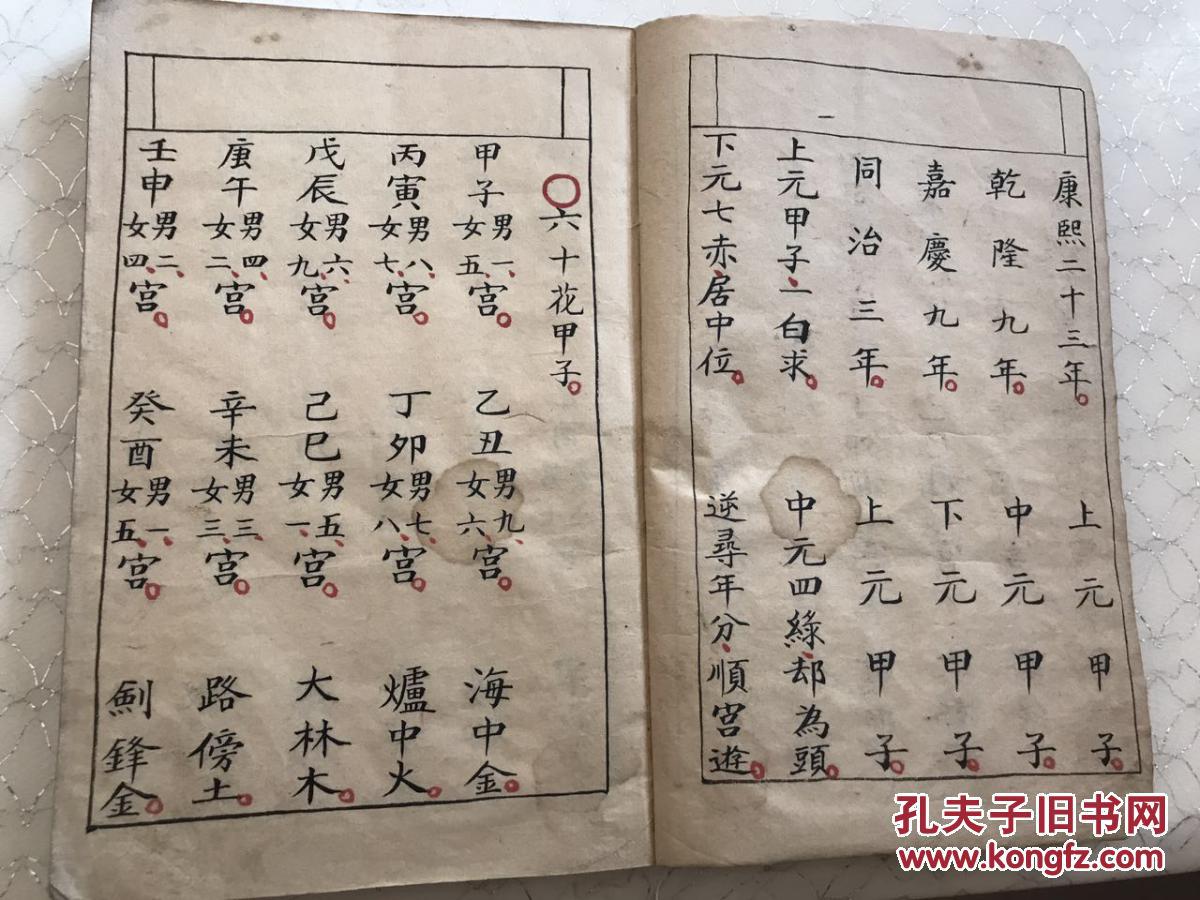 康熙二十三年。上元甲子。
乾隆九年。中元甲子。
嘉慶九年。下元甲子。
同治三年。上元甲子。
上元甲子、一白求。中元四綠、却為頭。
下元七赤、居中位。逆尋年分、順宮遊。
〇六十花甲子。
甲子男一、女五、宮。乙丑男九、女六、宮。海中金。
丙寅男八、女七、宮。丁卯男七、女八、宮。爐中火。
戊辰男六、女九、宮。己巳男五、女一、宮。大林木。
庚午男四、女二、宮。辛未男三、女三、宮。路傍土。
壬申男二、女四、宮。癸酉男一、女五、宮。劍鋒金。
孔夫子旧书网
www.kongfz.com